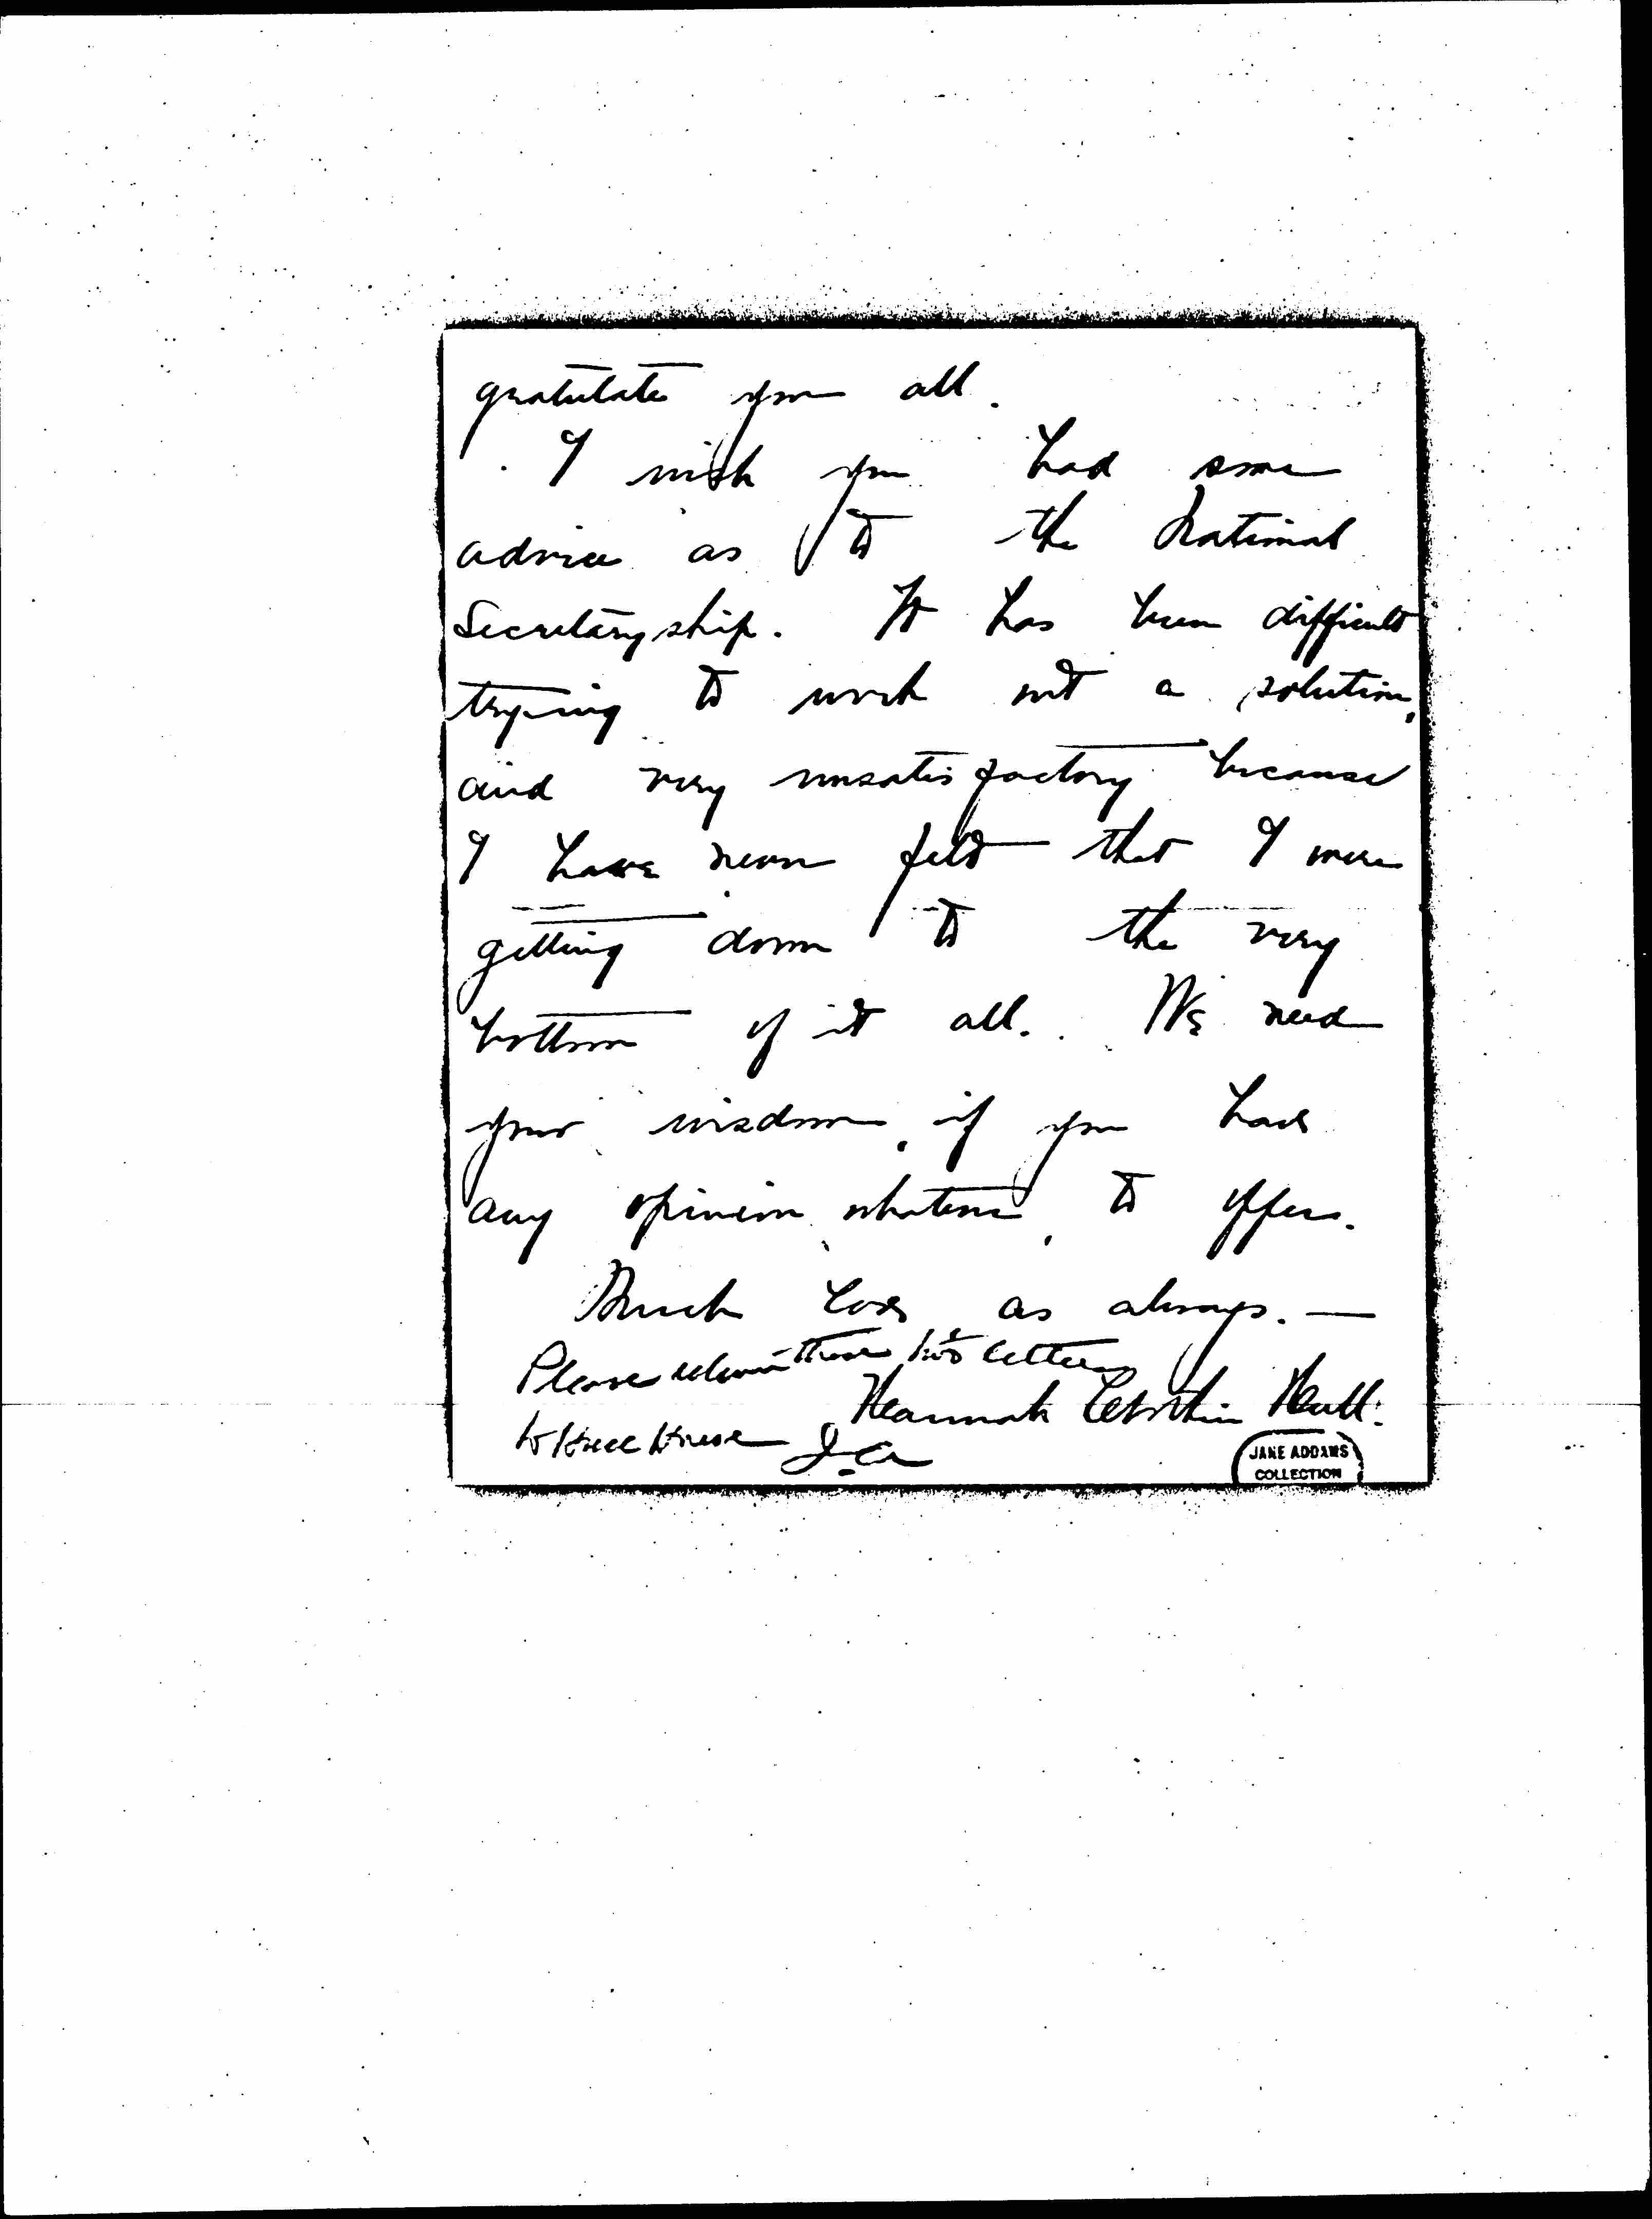 gratulate you all.
I wish you had some
advice as to the National
Secretaryship. It has been difficult
trying to work out a solution,
and very unsatisfactory because
I have never felt that I were
getting down to the very
bottom of it all. We need
your wisdom, if you have
any opinion whatever, to offer.
Much love as always. —
Please return these two letters
Hannah Clothier Hull.
to Hull House J.A
JANE ADDAMS
COLLECTION